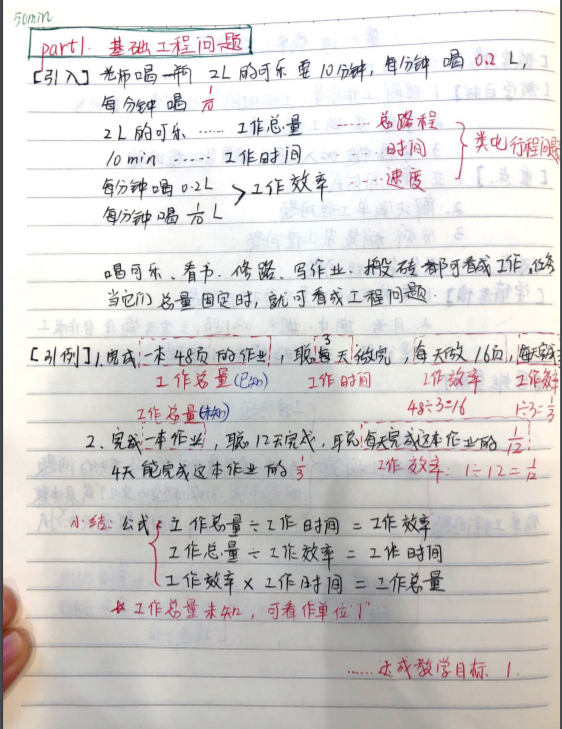 50min
part1. 基础工程问题
[引入] 老师喝一瓶 2L 的可乐要 10分钟, 每分钟喝 0.2 L,
每分钟喝 1/10
2L 的可乐 …… 工作总量 …… 总路程
10 min …… 工作时间 …… 时间 } 类比行程问题
每分钟喝 0.2L
> 工作效率 …… 速度
每分钟喝 1/10 L
喝可乐、看书、修路、写作业、搬砖都可看成工作任务
当它们总量固定时, 就可看成工程问题.
[引例] 1. 完成一本 48页的作业, 聪 3 天做完, 每天做 16页,
工作总量(已知) 工作时间 工作效率 工作效率
48÷3=16 1÷3=1/3
工作总量(未知)
2、完成一本作业, 聪 12天完成, 聪每天完成这本作业的 1/12
4天能完成这本作业的 1/3 工作效率: 1÷12=1/12
小结: 公式 { 工作总量÷工作时间 = 工作效率
工作总量 ÷ 工作效率 = 工作时间
工作效率 × 工作时间 = 工作总量
* 工作总量未知, 可看作单位"1"
…… 达成教学目标 1.